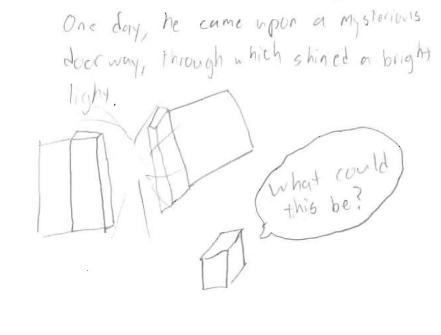 One day, he came upon a mysterious
doorway, through which shined a bright
light.
What could
this be?